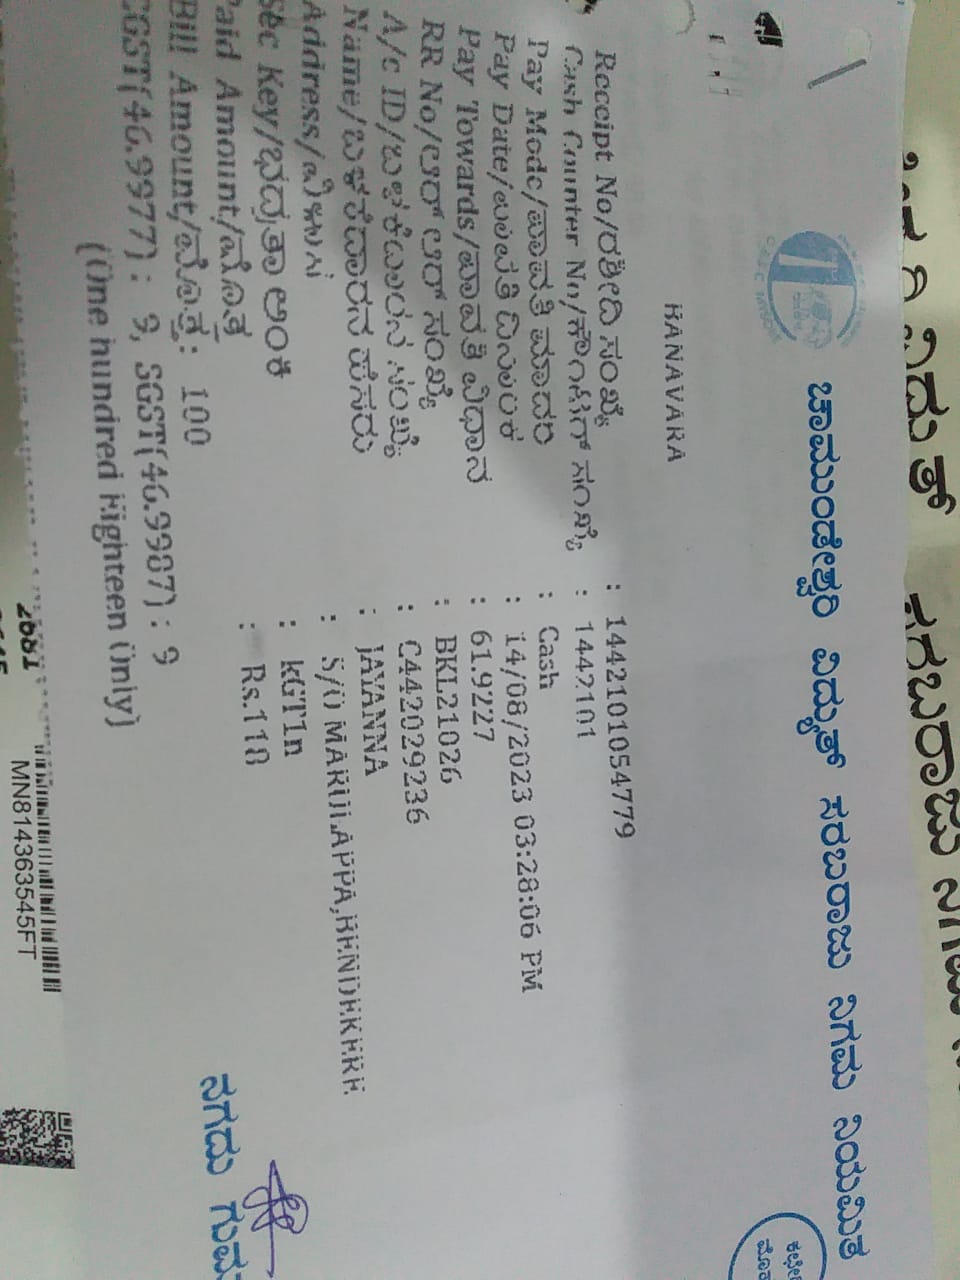 ಚಾಮುಂಡೇಶ್ವರಿ ವಿದ್ಯುತ್ ಸರಬರಾಜು ನಿಗಮ ನಿಯಮಿತ
BANAVARA
Receipt No/ರಶೀದಿ ಸಂಖ್ಯೆ : 1442101054779
Cash Counter No/ಕೌಂಟರ್ ಸಂಖ್ಯೆ : 1442101
Pay Mode/ಪಾವತಿ ಮಾದರಿ : Cash
Pay Date/ಪಾವತಿ ದಿನಾಂಕ : 14/08/2023 03:28:06 PM
Pay Towards/ಪಾವತಿ ವಿಧಾನ : 61.9227
RR No/ಆರ್ ಆರ್ ಸಂಖ್ಯೆ : BKL21026
A/c ID/ಬಳಕೆದಾರನ ಸಂಖ್ಯೆ : C442029236
Name/ಬಳಕೆದಾರನ ಹೆಸರು : JAYANNA
Address/ವಿಳಾಸ : S/O MARULAPPA,BENDEKERE
Sec Key/ಭದ್ರತಾ ಅಂಕಿ : kGT1n
Paid Amount/ಮೊತ್ತ : Rs.118
Bill Amount/ಮೊತ್ತ: 100
CGST(46.9977) : 9, SGST(46.9987) : 9
(One hundred Eighteen Only)
ನಗದು
2681
MN814363545FT